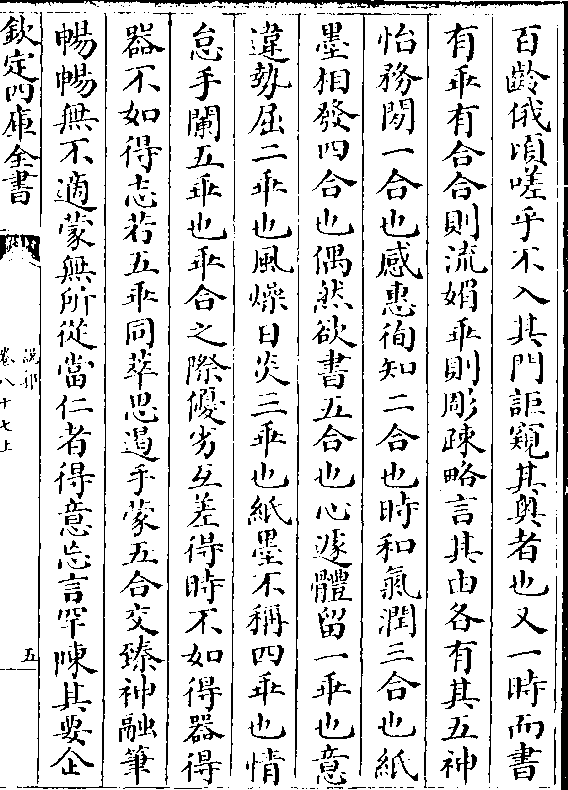 百齡俄頃嗟乎不入其門詎窺其奥者也又一時而書
有乖有合合則流媚乖則彫疎略言其由各有其五神
怡務閑一合也感惠徇知二合也時和氣潤三合也紙
墨相發四合也偶然欲書五合也心遽體留一乖也意
違勢屈二乖也風燥日炎三乖也紙墨不稱四乖也情
怠手闌五乖也乖合之際優劣互差得時不如得器得
器不如得志若五乖同萃思遏手蒙五合交臻神融筆
暢暢無不適蒙無所從當仁者得意忘言罕陳其要企
欽定四庫全書
說郛
卷八十七上
五